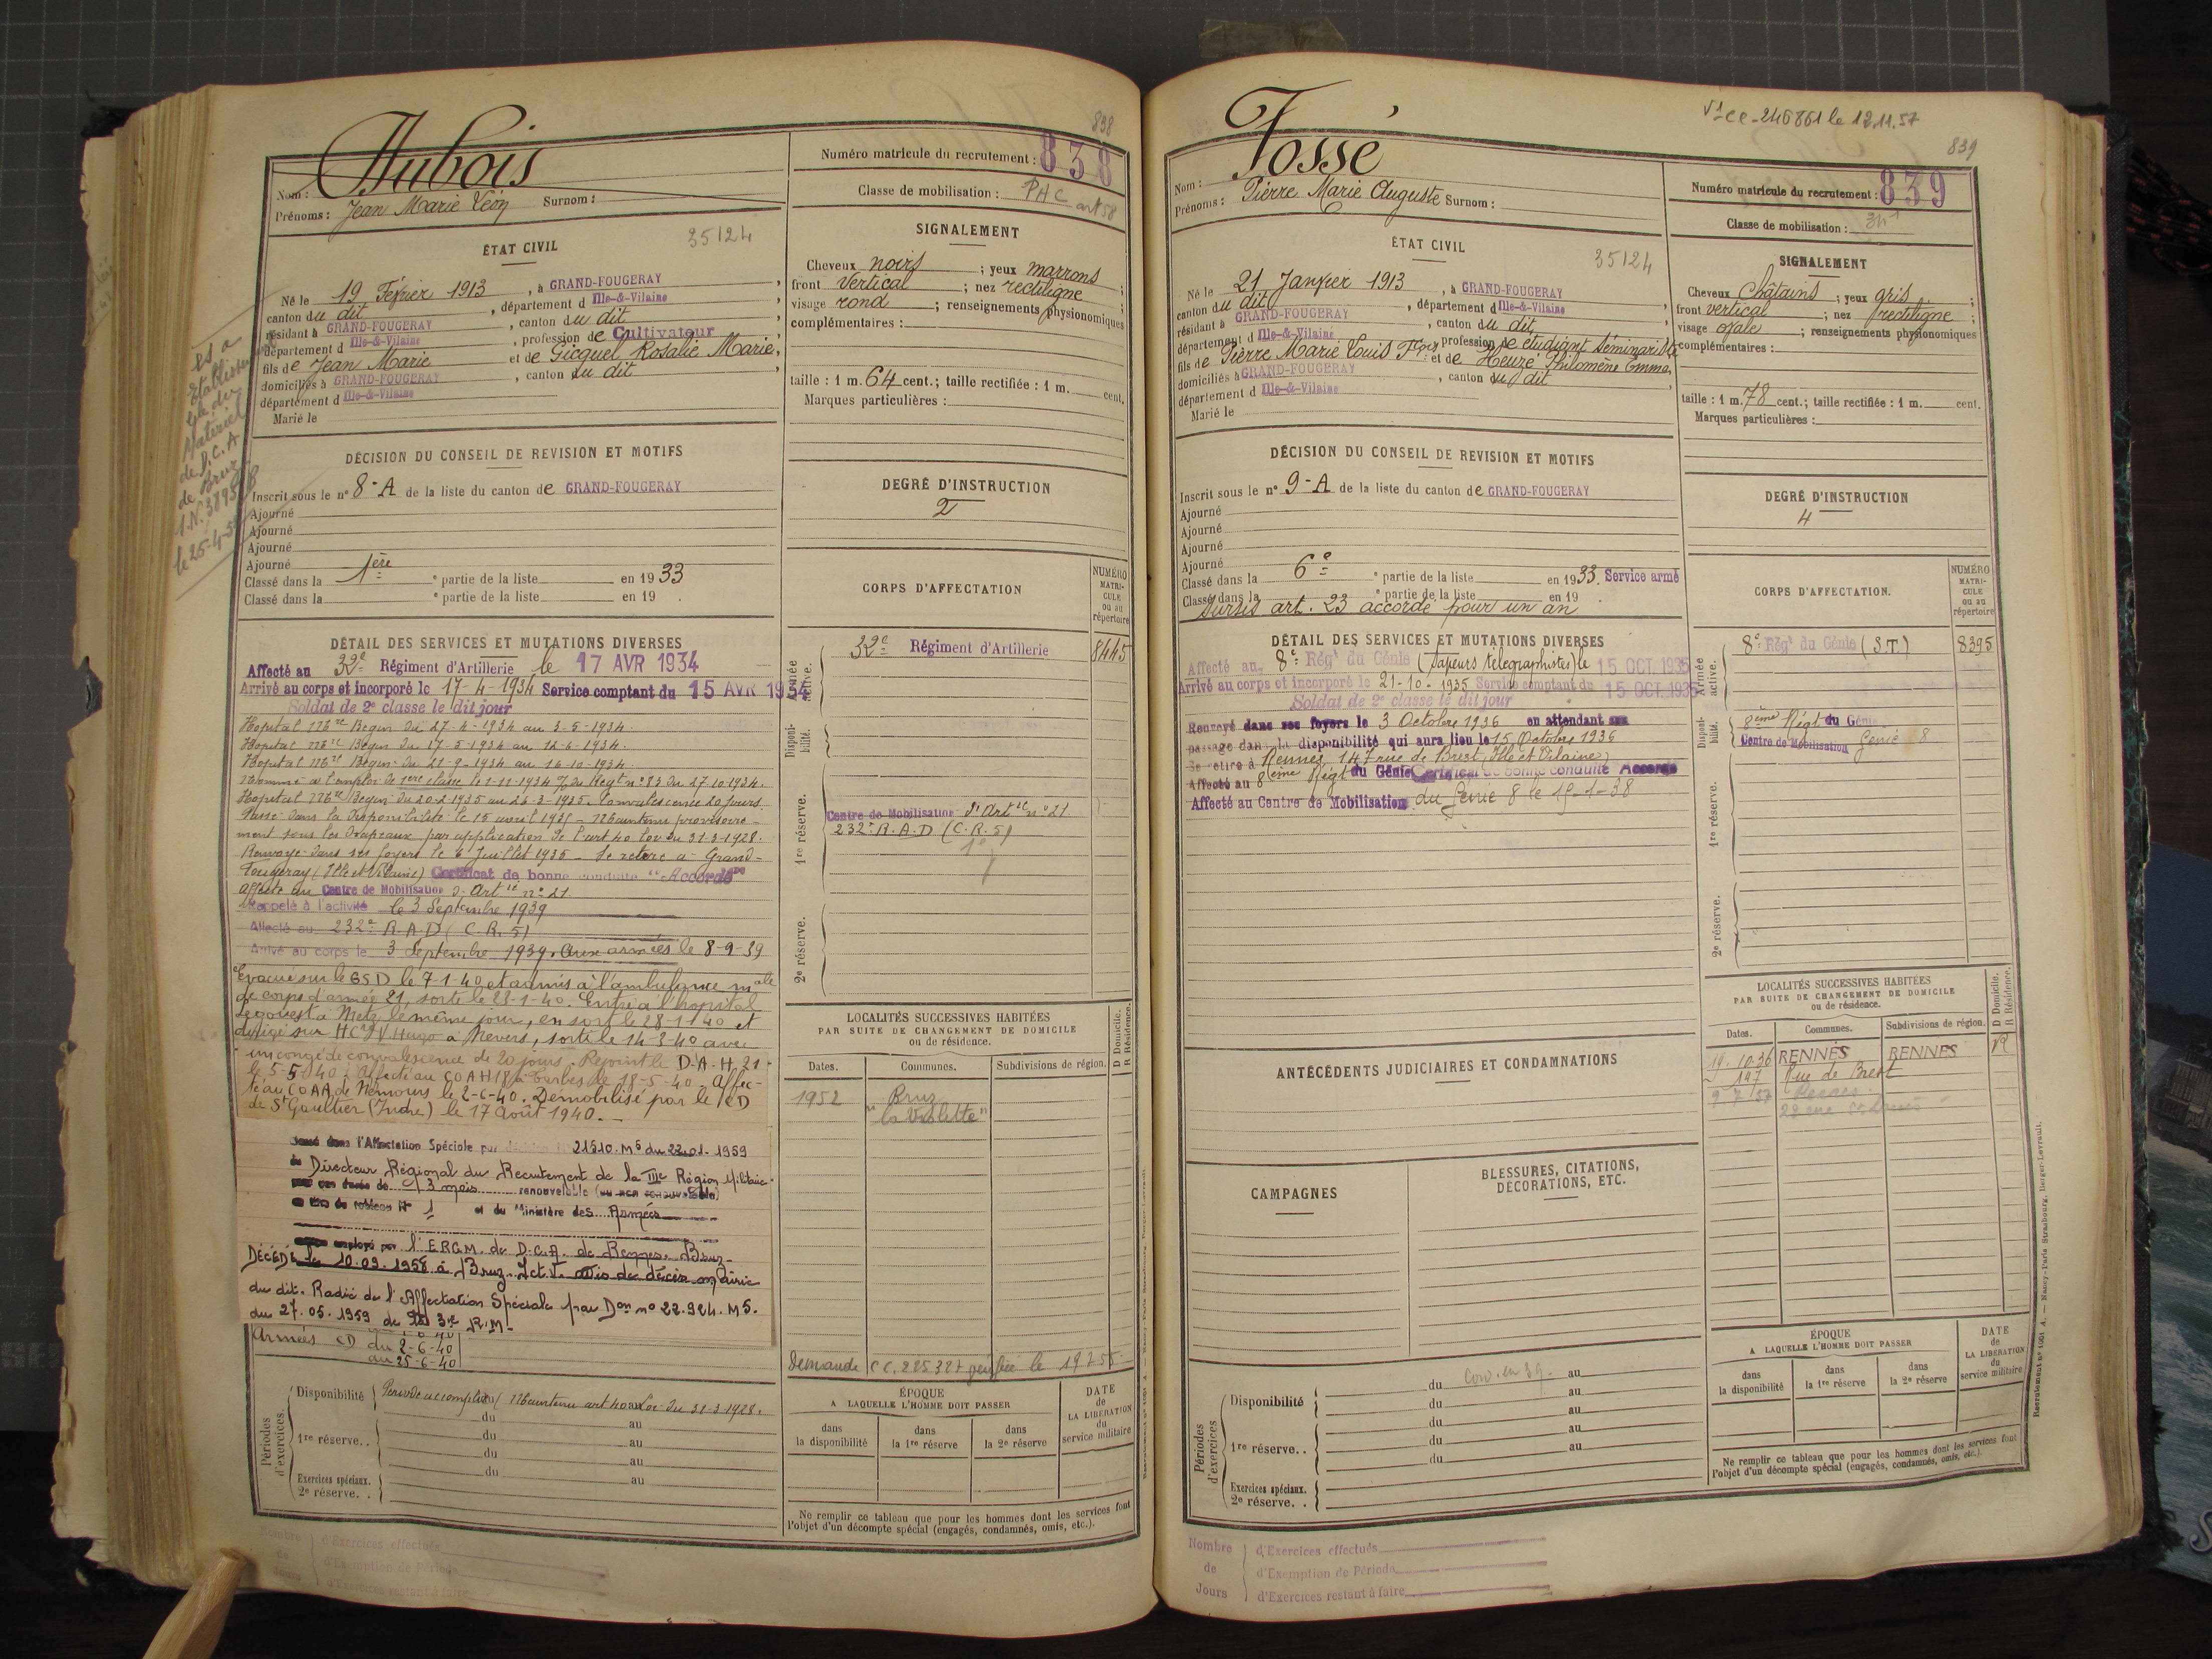 838
Hubois
Nom :
Prénoms : Jean Marie Léon Surnom :
Numéro matricule du recrutement : 838
Classe de mobilisation : PAC
art 58
ÉTAT CIVIL
35124
Né le 19 Février 1913, à GRAND-FOUGERAY,
canton du dit, département d Ille-&-Vilaine,
résidant à GRAND-FOUGERAY, canton du dit,
département d Ille-&-Vilaine, profession de Cultivateur
fils de Jean Marie et de Gicquel Rosalie Marie,
domiciliés à GRAND-FOUGERAY, canton du dit,
département d Ille-&-Vilaine
Marié le
SIGNALEMENT
Cheveux noirs ; yeux marrons ;
front vertical ; nez rectiligne ;
visage rond ; renseignements physionomiques
complémentaires :
taille : 1 m. 64 cent.; taille rectifiée : 1 m. cent.
Marques particulières :
est a
Etablissem
gle du
Matériel
de D.C.A
de Bruz
DÉCISION DU CONSEIL DE REVISION ET MOTIFS
Inscrit sous le n° 8-A de la liste du canton de GRAND-FOUGERAY
Ajourné
Ajourné
Ajourné
Ajourné
Classé dans la 1ère partie de la liste en 1933
Classé dans la partie de la liste en 19 .
DEGRÉ D'INSTRUCTION
2
CORPS D'AFFECTATION
NUMÉRO MATRI-CULE ou au répertoire
Armée active.
32e Régiment d'Artillerie 8445
Disponi-bilité.
1re réserve.
Centre de Mobilisation d'Art ie n° 21
232e R.A.D (C.R.5)
2e réserve.
DÉTAIL DES SERVICES ET MUTATIONS DIVERSES
Affecté au 32e Régiment d'Artillerie le 17 AVR 1934
Arrivé au corps et incorporé le 17-4-1934 Service comptant du 15 AVR 1934
Soldat de 2e classe le dit jour
Hopital Mre Begin du 27-4-1934 au 3-5-1934.
Hopital Mre Begin du 17-5-1934 au 12-6-1934.
Hopital Mre Begin du 21-9-1934 au 16-10-1934.
Nommé à l'emploi de 1ere classe le 1-11-1934 O/du Regt n° 83 du 27-10-1934.
Hopital Mre Begin du 20-2-1935 au 23-3-1935. Convalescence 20 jours.
Passé dans la disponibilité le 15 avril 1935 - Maintenu provisoire-
ment sous les drapeaux par application de l'art 40 loi du 31-3-1928.
Renvoyé dans ses foyers le 6 Juillet 1935 - Se retire à Grand-
Fougeray (Ille et Vilaine) Certificat de bonne conduite "Accordé"
Affecté au Centre de Mobilisation d'Art ie n° 21
Rappelé à l'activité le 3 Septembre 1939
Affecté au 232e R.A.D (C.R.5)
Arrivé au corps le 3 Septembre 1939. Aux armées le 8-9-39
Evacué sur le GSD le 7-1-40 et admis à l'ambulance male
de corps d'armée 21, sorti le 23-1-40. Entré à l'hopital
Legouest à Metz le même jour, en sort le 28-1-40 et
dirigé sur HC V. Hugo à Nevers, sorti le 14-3-40 avec
un congé de convalescence de 20 jours. Rejoint le D.A.H 21
le 5-5-40. Affecté au COAH 18 à Tarbes le 18-5-40. Affec-
té au COAA de Nemours le 2-6-40. Démobilisé par le CD
de St Gaultier (Indre) le 17 Août 1940. -
dans l'Affectation Spéciale par décision 21510. MS du 22.01-1959
du Directeur Régional du Recrutement de la IIIe Région Militaire
durée de 3 mois renouvelable
du tableau N° 1 et du Ministère des Armées
employé par l'ERGM. de D.C.A. de Rennes. Bruz
DÉCÉDÉ le 10.03.1958 à Bruz. avis de décès Mairie
du dit. Radié de l'Affectation Spéciale par Don n° 22.924. MS.
du 27.05.1959 de la 3e R.M-
Armées CD du 2-6-40
au 25-6-40
LOCALITÉS SUCCESSIVES HABITÉES
PAR SUITE DE CHANGEMENT DE DOMICILE
ou de résidence.
D Domicile.
R Résidence.
Dates. Communes. Subdivisions de région.
1952 Bruz
"la Violette"
Demande CC.225327 le 19.7.55
Périodes d'exercices.
Disponibilité Période accomplie (Maintenu art 40 Loi du 31-3-1928.
du au
1re réserve. . du au
du au
du au
Exercices spéciaux.
2e réserve. .
ÉPOQUE
A LAQUELLE L'HOMME DOIT PASSER
DATE de LA LIBÉRATION du service militaire
dans la disponibilité
dans la 1re réserve
dans la 2e réserve
Ne remplir ce tableau que pour les hommes dont les services font
l'objet d'un décompte spécial (engagés, condamnés, omis, etc.).
Nombre de Jours
d'Exercices effectués
d'Exemption de Période
d'Exercices restant à faire
CC-246861 le 12.11.57
839
Fossé
Nom :
Prénoms : Pierre Marie Auguste Surnom :
Numéro matricule du recrutement : 839
Classe de mobilisation :
ÉTAT CIVIL
35124
Né le 21 Janvier 1913, à GRAND-FOUGERAY
canton du dit, département d Ille-&-Vilaine,
résidant à GRAND-FOUGERAY, canton du dit,
département d Ille-&-Vilaine, profession de étudiant séminariste
fils de Pierre Marie Louis Fçois et de Heuzé Philomène Emma,
domiciliés à GRAND-FOUGERAY, canton du dit
département d Ille-&-Vilaine
Marié le
SIGNALEMENT
Cheveux Châtains ; yeux gris ;
front vertical ; nez rectiligne ;
visage ovale ; renseignements physionomiques
complémentaires :
taille : 1 m. 78 cent.; taille rectifiée : 1 m. cent.
Marques particulières :
DÉCISION DU CONSEIL DE REVISION ET MOTIFS
Inscrit sous le n° 9-A de la liste du canton de GRAND-FOUGERAY
Ajourné
Ajourné
Ajourné
Ajourné
Classé dans la 6e partie de la liste en 1933. Service armé
Classé dans la partie de la liste en 19 .
Sursis art. 23 accordé pour un an
DEGRÉ D'INSTRUCTION
4
CORPS D'AFFECTATION.
NUMÉRO MATRI-CULE ou au répertoire
Armée active.
8e Régt du Génie (S.T.) 8395
Disponi-bilité.
8ème Régt du Génie
Centre de Mobilisation Genie 8
1re réserve.
2e réserve.
DÉTAIL DES SERVICES ET MUTATIONS DIVERSES
Affecté au 8e Régt du Génie (Sapeurs télégraphistes) le 15 OCT. 1935
Arrivé au corps et incorporé le 21-10-1935 Service comptant du 15 OCT. 1935
Soldat de 2e classe le dit jour
Renvoyé dans ses foyers le 3 Octobre 1936 en attendant son
passage dans la disponibilité qui aura lieu le 15 Octobre 1936
Se retire à Rennes, 147 rue de Brest, Ille et Vilaine)
Affecté au 8ème Régt du Génie Certificat de bonne conduite Accordé
Affecté au Centre de Mobilisation du Génie 8 le 15-1-38
ANTÉCÉDENTS JUDICIAIRES ET CONDAMNATIONS
CAMPAGNES
BLESSURES, CITATIONS,
DÉCORATIONS, ETC.
LOCALITÉS SUCCESSIVES HABITÉES
PAR SUITE DE CHANGEMENT DE DOMICILE
ou de résidence.
D Domicile.
R Résidence.
Dates. Communes. Subdivisions de région.
19.10.36 RENNES RENNES R
147 Rue de Brest
9 7 37 Rennes
Périodes d'exercices
Disponibilité du au
du au
du au
1re réserve. . du au
du au
Exercices spéciaux.
2e réserve. .
ÉPOQUE
A LAQUELLE L'HOMME DOIT PASSER
DATE de LA LIBÉRATION du service militaire
dans la disponibilité
dans la 1re réserve
dans la 2e réserve
Ne remplir ce tableau que pour les hommes dont les services font
l'objet d'un décompte spécial (engagés, condamnés, omis, etc.).
Recrutement n° 1001 A. — Nancy-Paris Strasbourg, Berger-Levrault.
Nombre de Jours
d'Exercices effectués
d'Exemption de Période
d'Exercices restant à faire